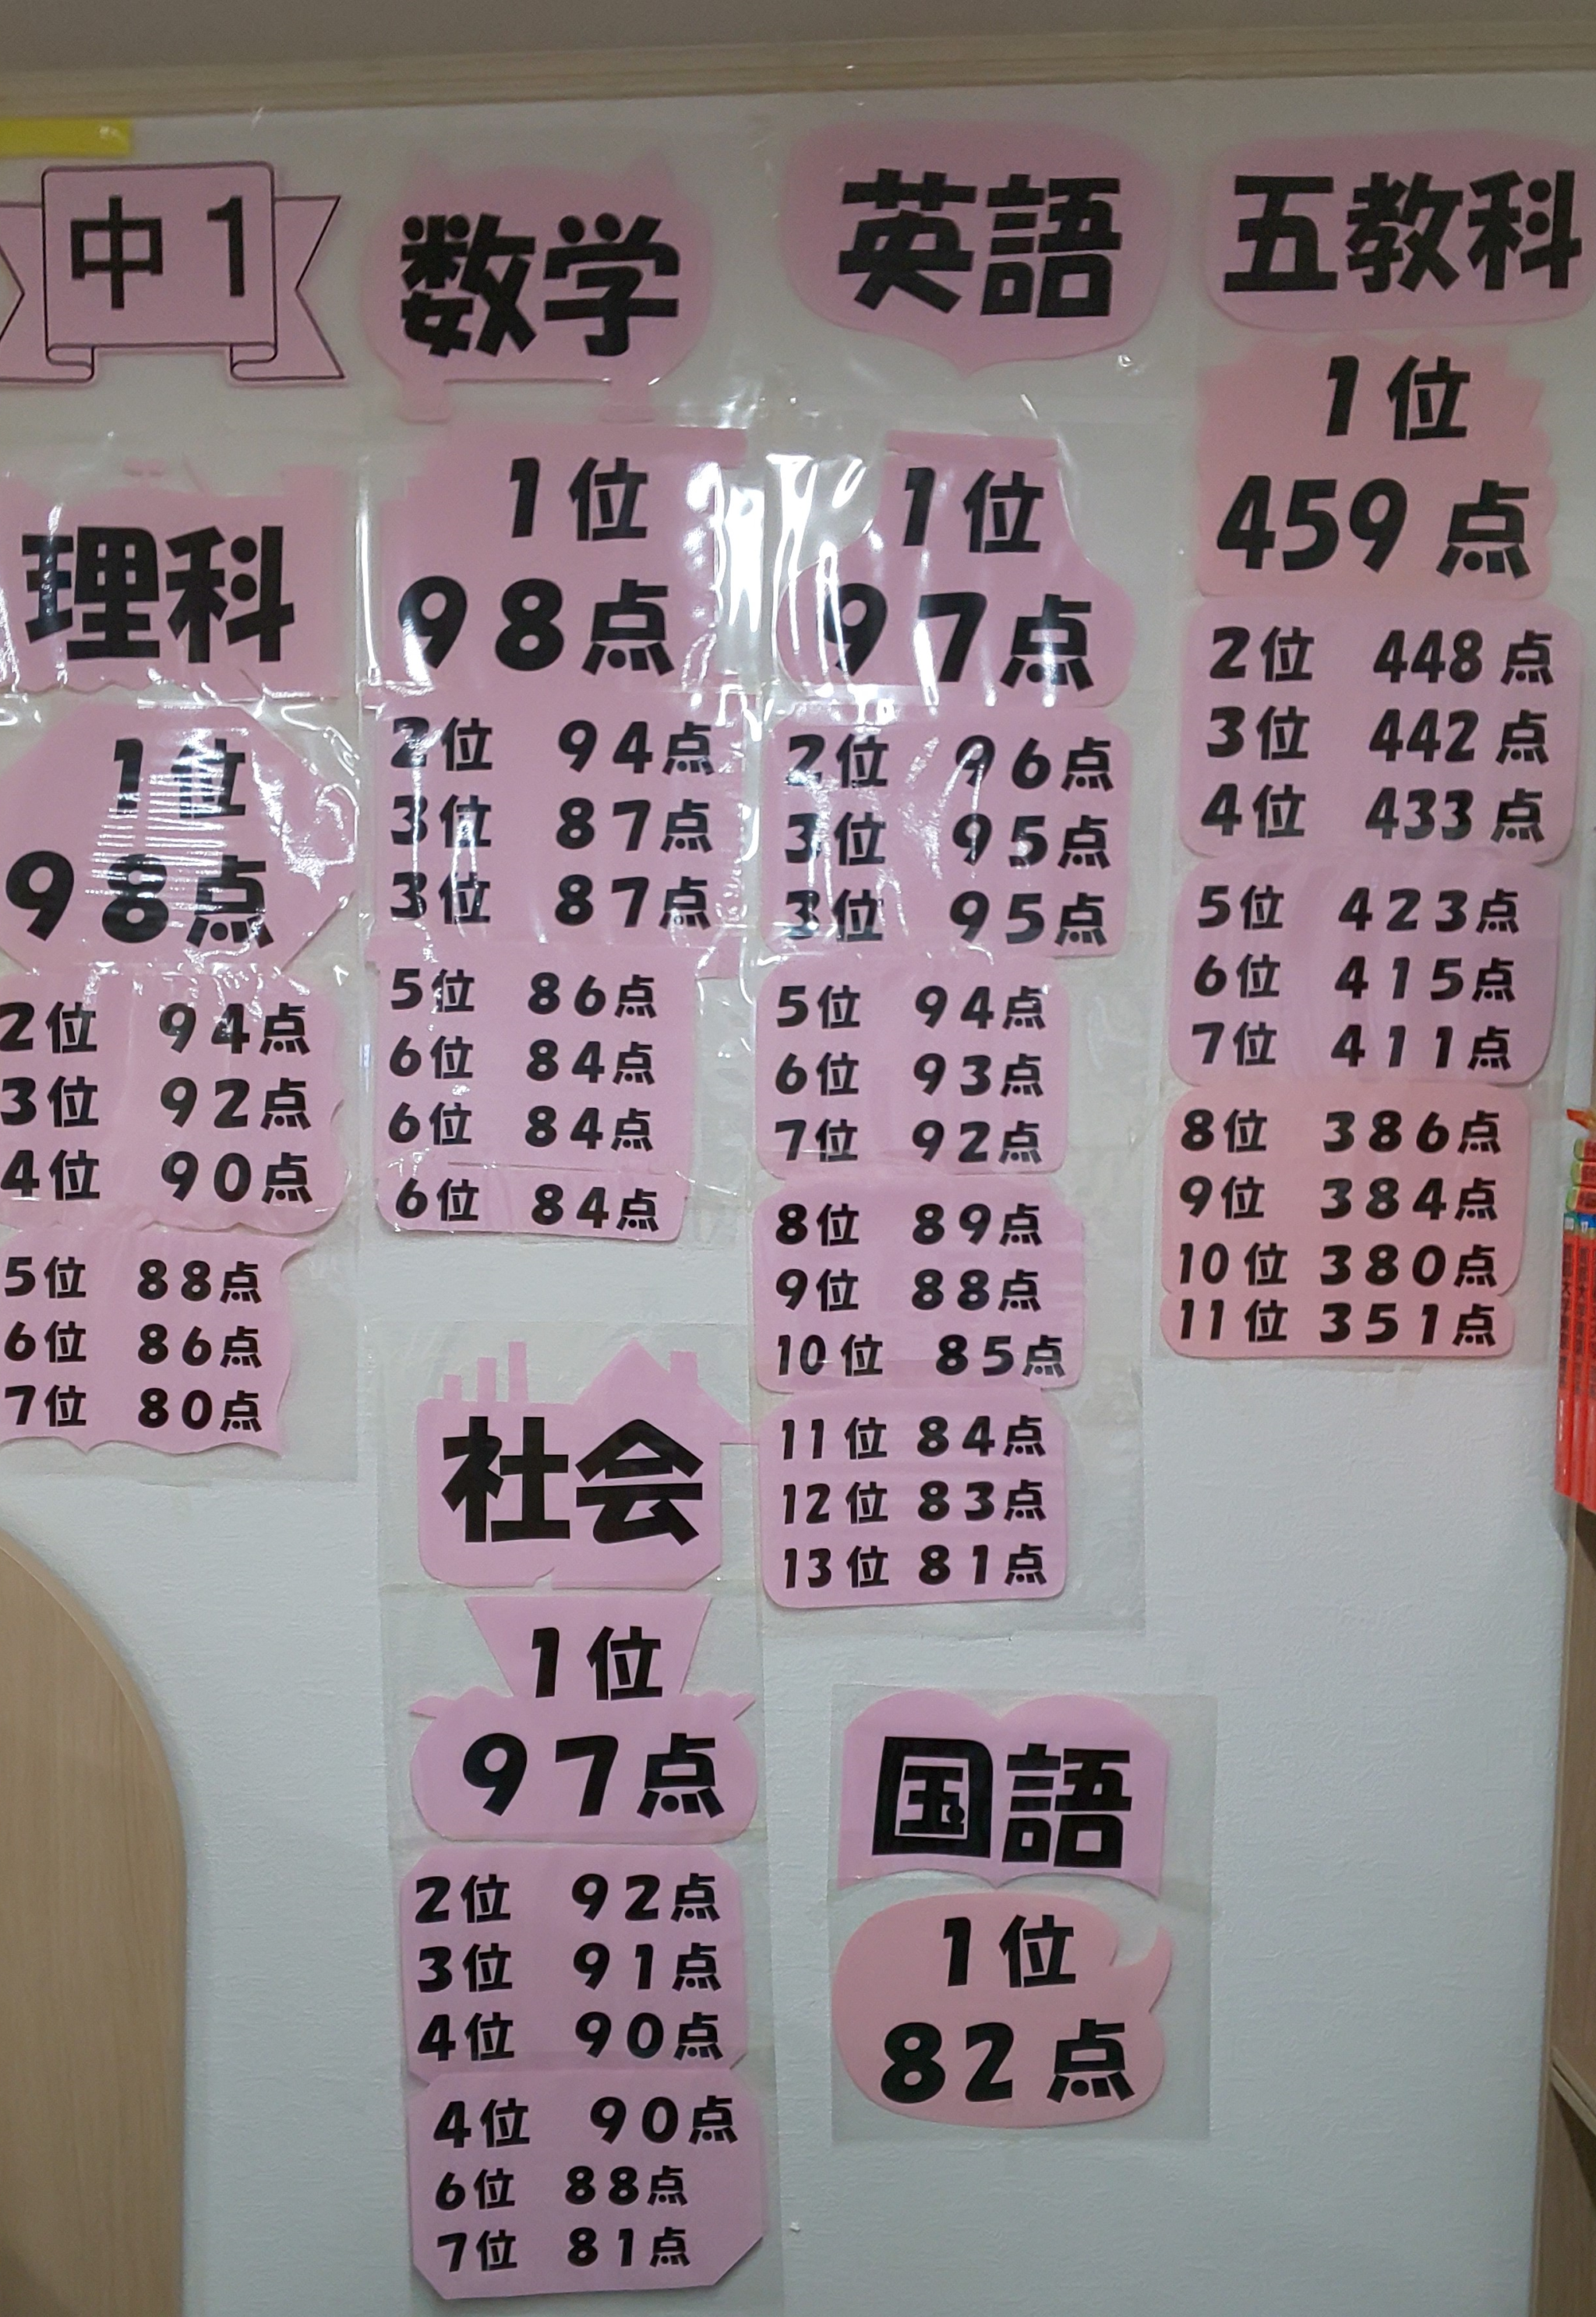 中1
理科
1位
98点
2位 94点
3位 92点
4位 90点
5位 88点
6位 86点
7位 80点
数学
1位
98点
2位 94点
3位 87点
3位 87点
5位 86点
6位 84点
6位 84点
6位 84点
社会
1位
97点
2位 92点
3位 91点
4位 90点
4位 90点
6位 88点
7位 81点
英語
1位
97点
2位 96点
3位 95点
3位 95点
5位 94点
6位 93点
7位 92点
8位 89点
9位 88点
10位 85点
11位 84点
12位 83点
13位 81点
国語
1位
82点
五教科
1位
459点
2位 448点
3位 442点
4位 433点
5位 423点
6位 415点
7位 411点
8位 386点
9位 384点
10位 380点
11位 351点